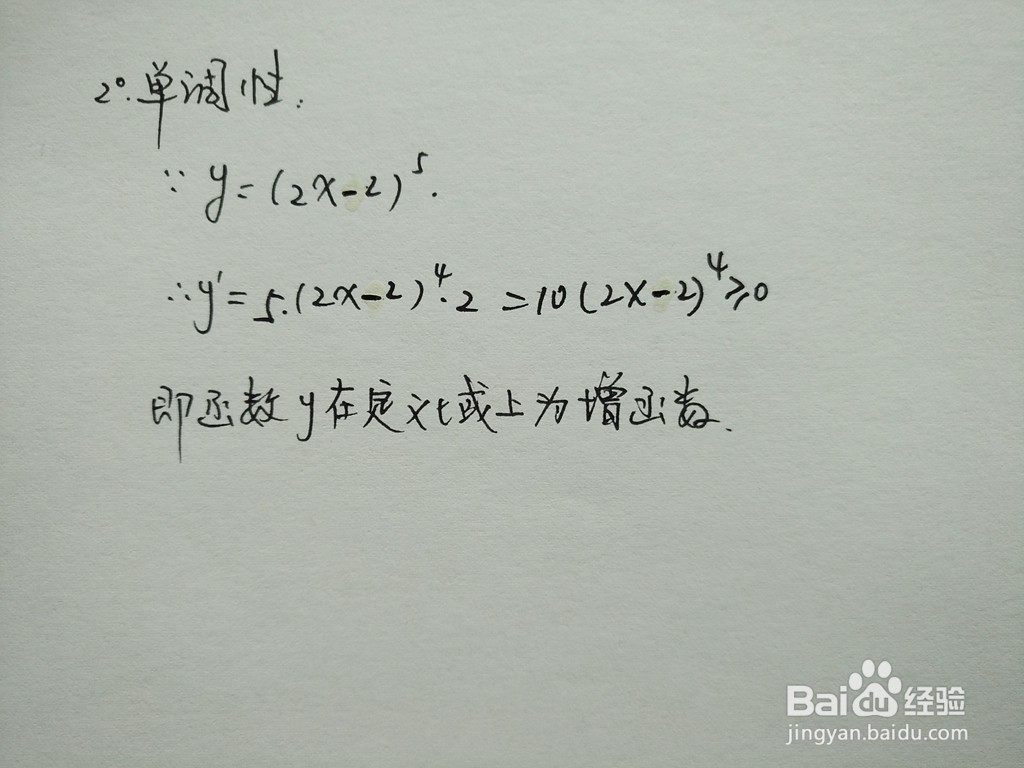 2°.单调性:
∵ y=(2x-2)⁵.
∴y'=5·(2x-2)⁴·2 =10(2x-2)⁴≥0
即函数y在定义域上为增函数.
Bai du 经验
jingyan.baidu.com